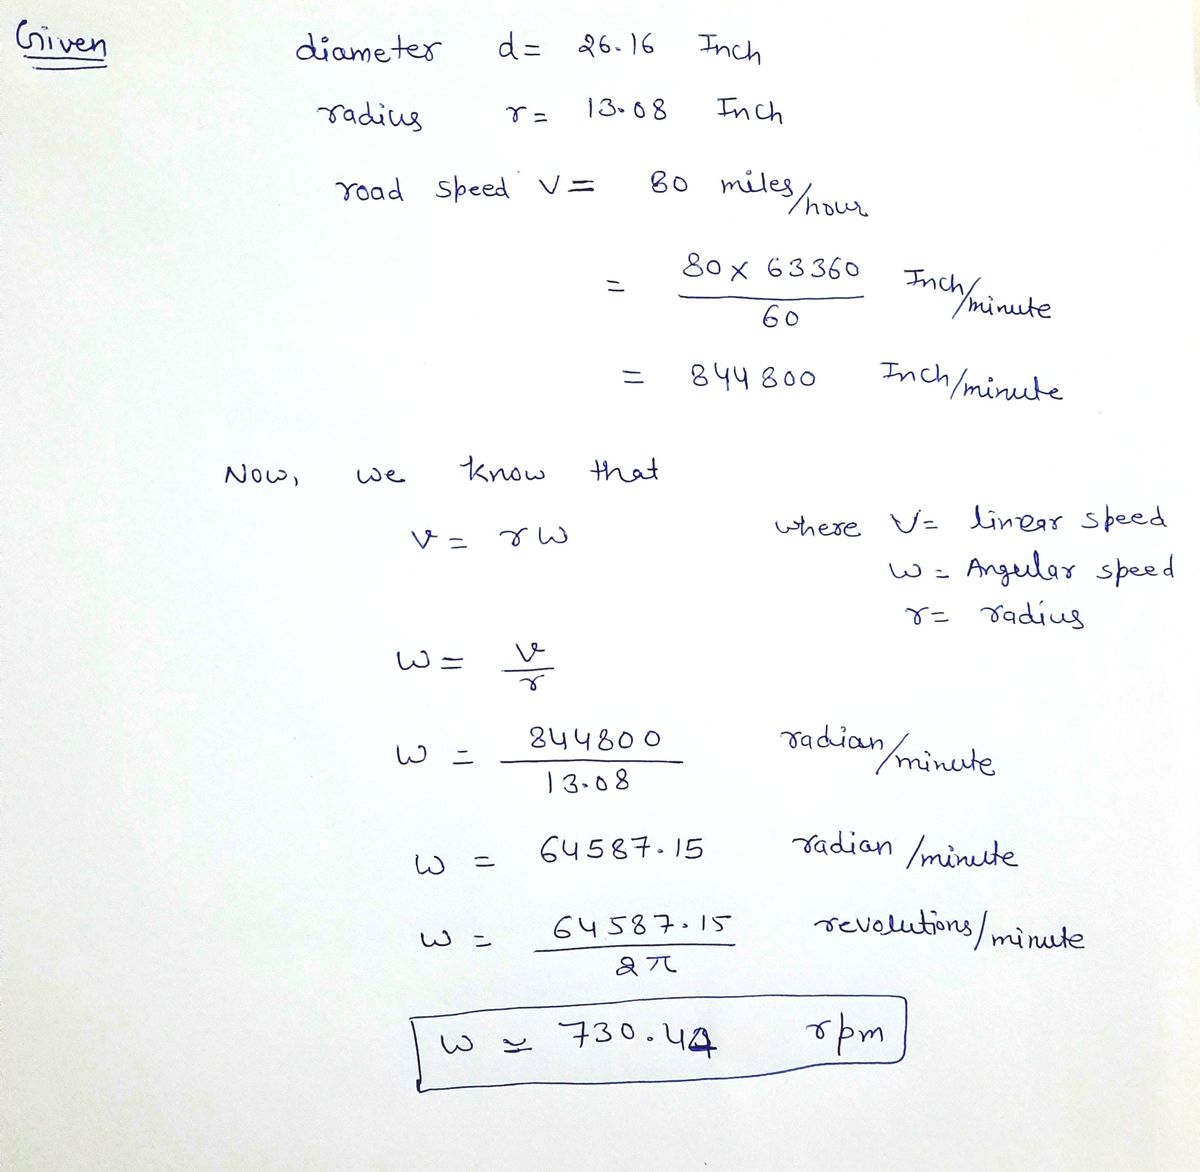 Given diameter d = 26.16 Inch
radius r = 13.08 Inch
road speed V = 80 miles/hour
= 80 x 63360 / 60 Inch/minute
= 844800 Inch/minute
Now, we know that
v = rw where V = linear speed
w = Angular speed
r = radius
w = v/r
w = 844800 / 13.08 radian/minute
w = 64587.15 radian/minute
w = 64587.15 / 2π revolutions/minute
w ≃ 730.44 rpm